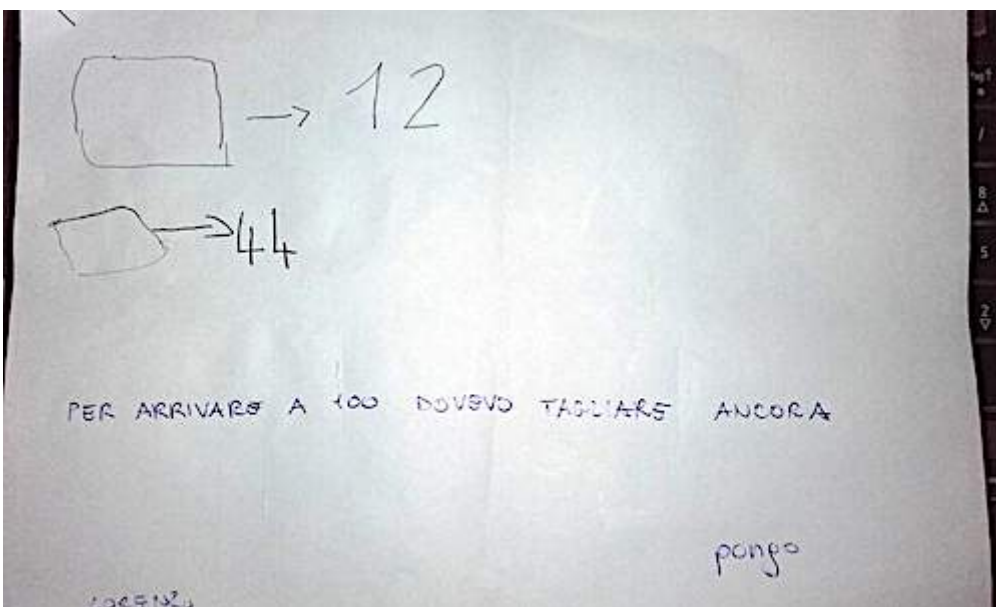 → 12
→ 44
PER ARRIVARE A 100 DOVEVO TAGLIARE ANCORA
pongo
LORENZO